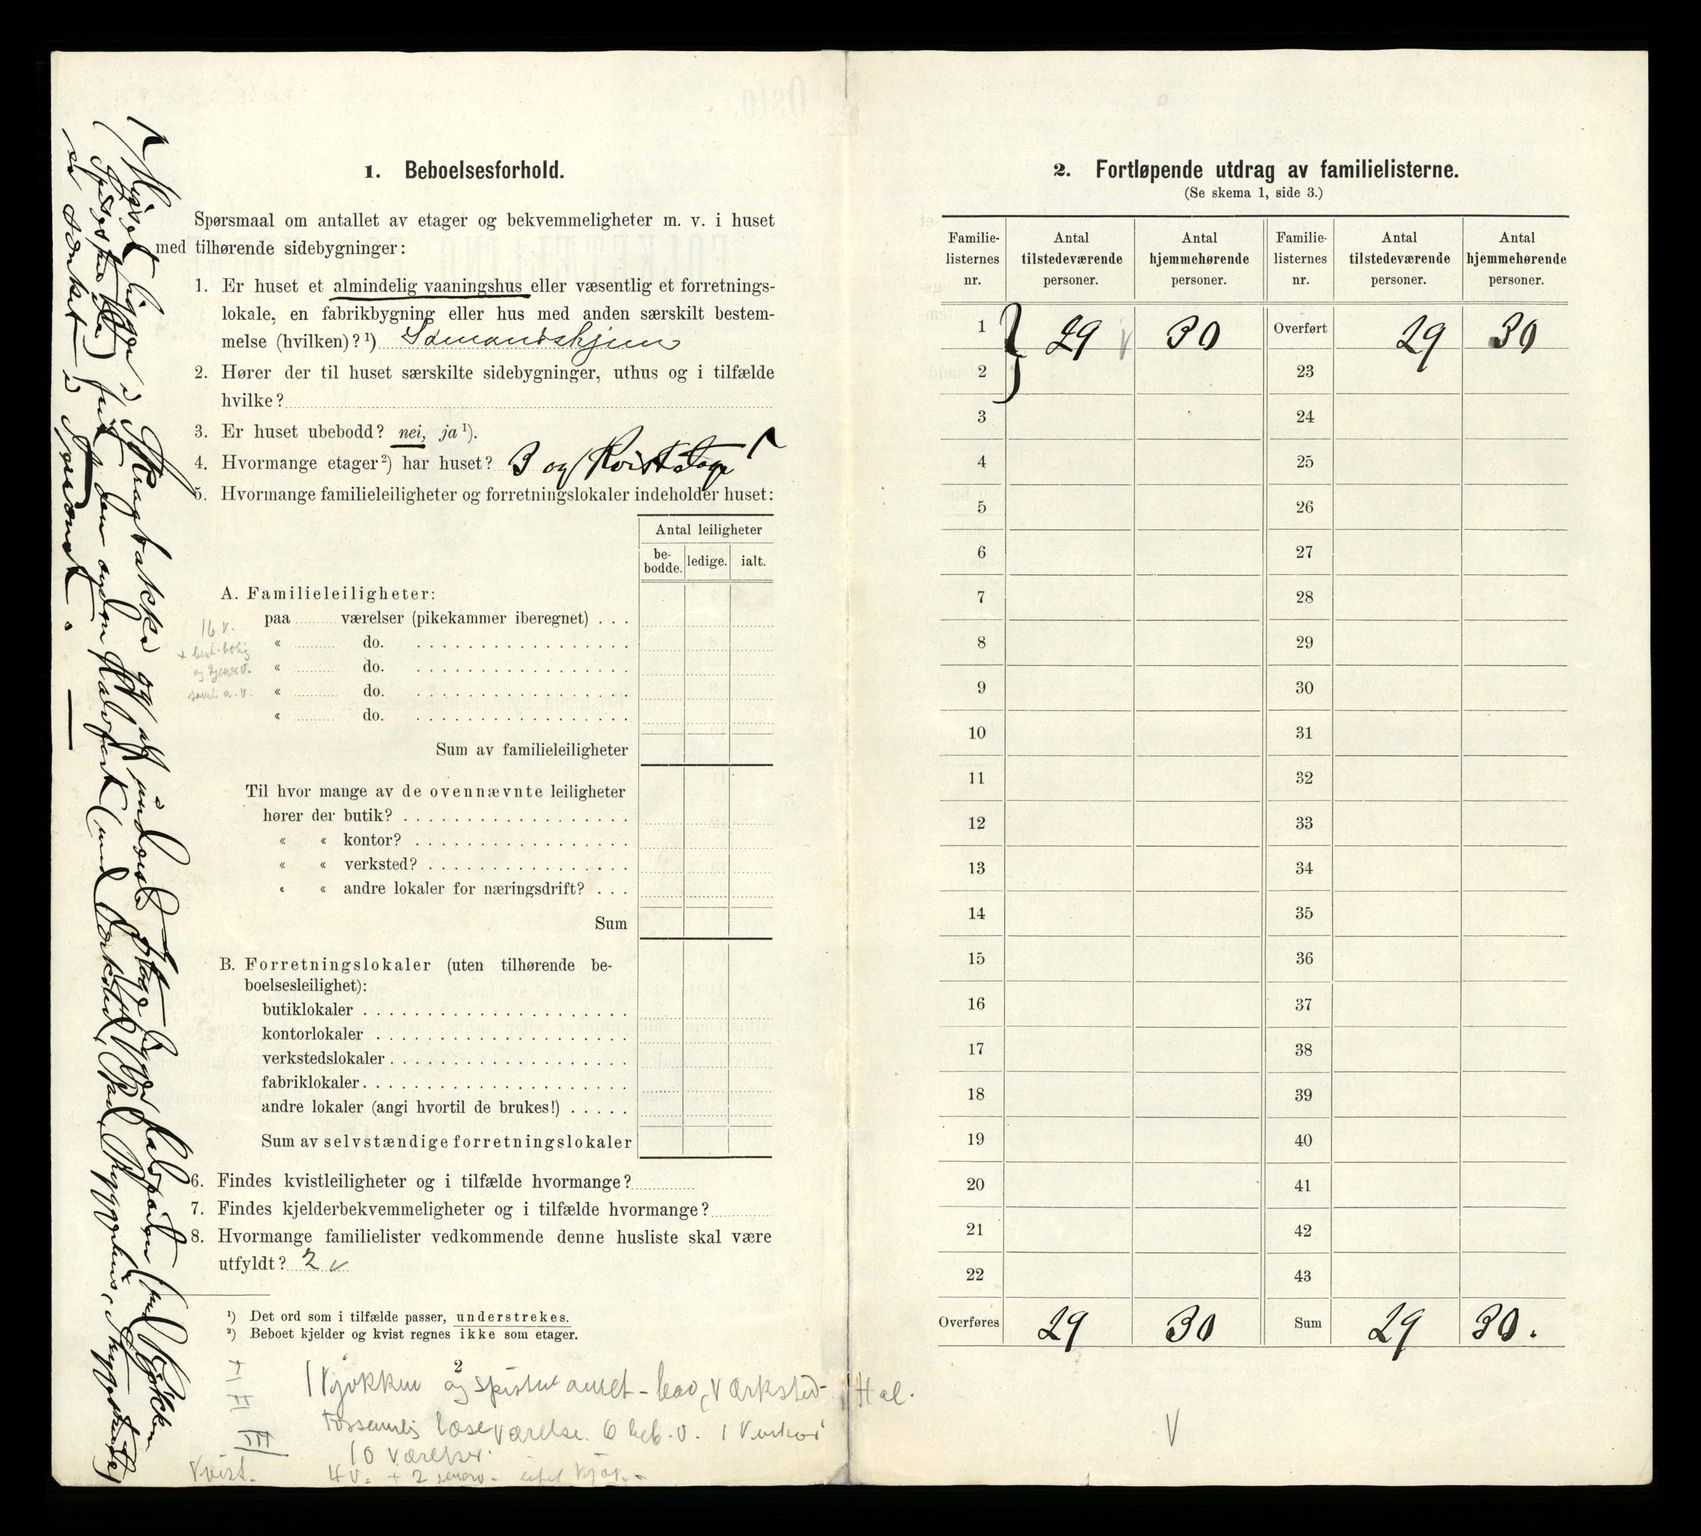 1. Beboelsesforhold.
Spørsmaal om antallet av etager og bekvemmeligheter m. v. i huset
med tilhørende sidebygninger:
1. Er huset et almindelig vaaningshus eller væsentlig et forretnings-
lokale, en fabrikbygning eller hus med anden særskilt bestem-
melse (hvilken)? ¹) Sømandshjem
2. Hører der til huset særskilte sidebygninger, uthus og i tilfælde
hvilke?
3. Er huset ubebodd? nei, ja ¹).
4. Hvormange etager ²) har huset? 3 og Kvistetage
5. Hvormange familieleiligheter og forretningslokaler indeholder huset:
Antal leiligheter
be-
bodde. ledige. ialt.
A. Familieleiligheter:
paa værelser (pikekammer iberegnet) . . .
« do.
« do.
« do.
« do.
16 v.
Sum av familieleiligheter
Til hvor mange av de ovennævnte leiligheter
hører der butik?
« « kontor?
« « verksted?
« « andre lokaler for næringsdrift? . . .
Sum
B. Forretningslokaler (uten tilhørende be-
boelsesleilighet):
butiklokaler
kontorlokaler
verkstedslokaler
fabriklokaler
andre lokaler (angi hvortil de brukes!)
Sum av selvstændige forretningslokaler
6. Findes kvistleiligheter og i tilfælde hvormange?
7. Findes kjelderbekvemmeligheter og i tilfælde hvormange?
8. Hvormange familielister vedkommende denne husliste skal være
utfyldt? 2 v
¹) Det ord som i tilfælde passer, understrekes.
²) Beboet kjelder og kvist regnes ikke som etager.
2
I Kjøkken og Værksted - Hal.
II læseværelse. 6 beb. v. 1
III 10 værelser.
Kvist. 4 v. + 2
Huset ligger i og af underste Etage
mod den øvre (med Værksted, Bad, Bryggerhus,
2. Fortløpende utdrag av familielisterne.
(Se skema 1, side 3.)
Familie-
listernes
nr. Antal
tilstedeværende
personer. Antal
hjemmehørende
personer. Familie-
listernes
nr. Antal
tilstedeværende
personer. Antal
hjemmehørende
personer.
1 29 v 30 Overført 29 30
2 23
3 24
4 25
5 26
6 27
7 28
8 29
9 30
10 31
11 32
12 33
13 34
14 35
15 36
16 37
17 38
18 39
19 40
20 41
21 42
22 43
Overføres 29 30 Sum 29 30.
V